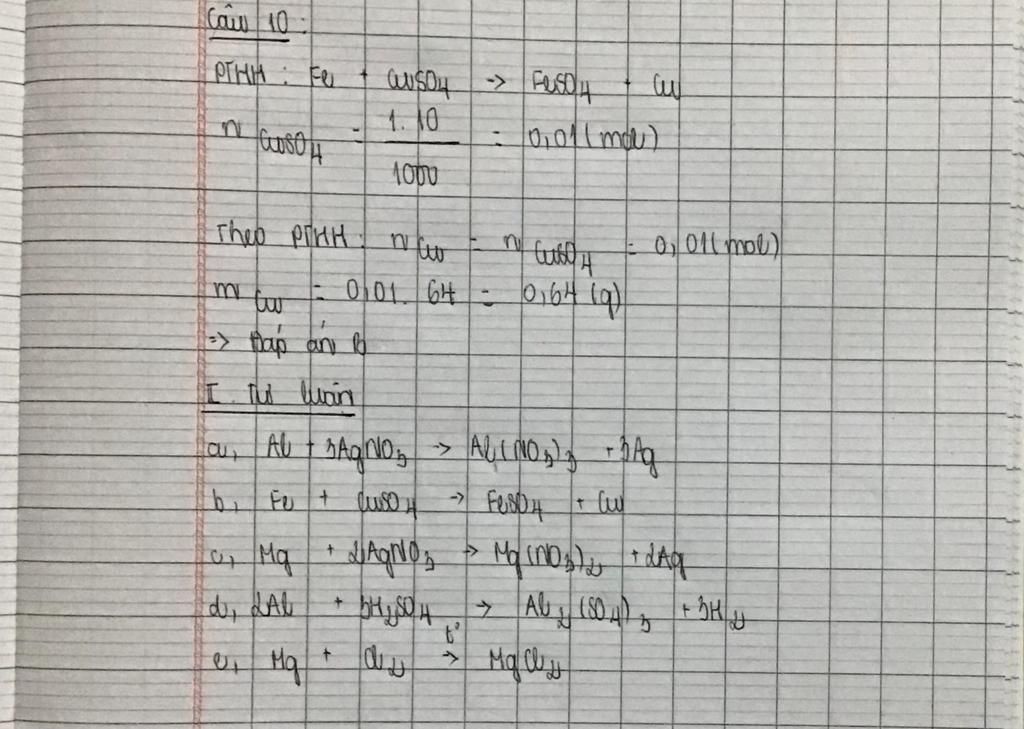 Câu 10:
PTHH: Fe + CuSO4 -> FeSO4 + Cu
n CuSO4 = 1.10 / 1000 = 0,01 (mol)
Theo PTHH: n Cu = n CuSO4 = 0,01 (mol)
m Cu = 0,01. 64 = 0,64 (g)
=> Đáp án B
I. Tự luận
a, Al + 3AgNO3 -> Al(NO3)3 + 3Ag
b, Fe + CuSO4 -> FeSO4 + Cu
c, Mg + 2AgNO3 -> Mg(NO3)2 + 2Ag
d, 2Al + 3H2SO4 -> Al2(SO4)3 + 3H2
e, Mg + Cl2 t° -> MgCl2